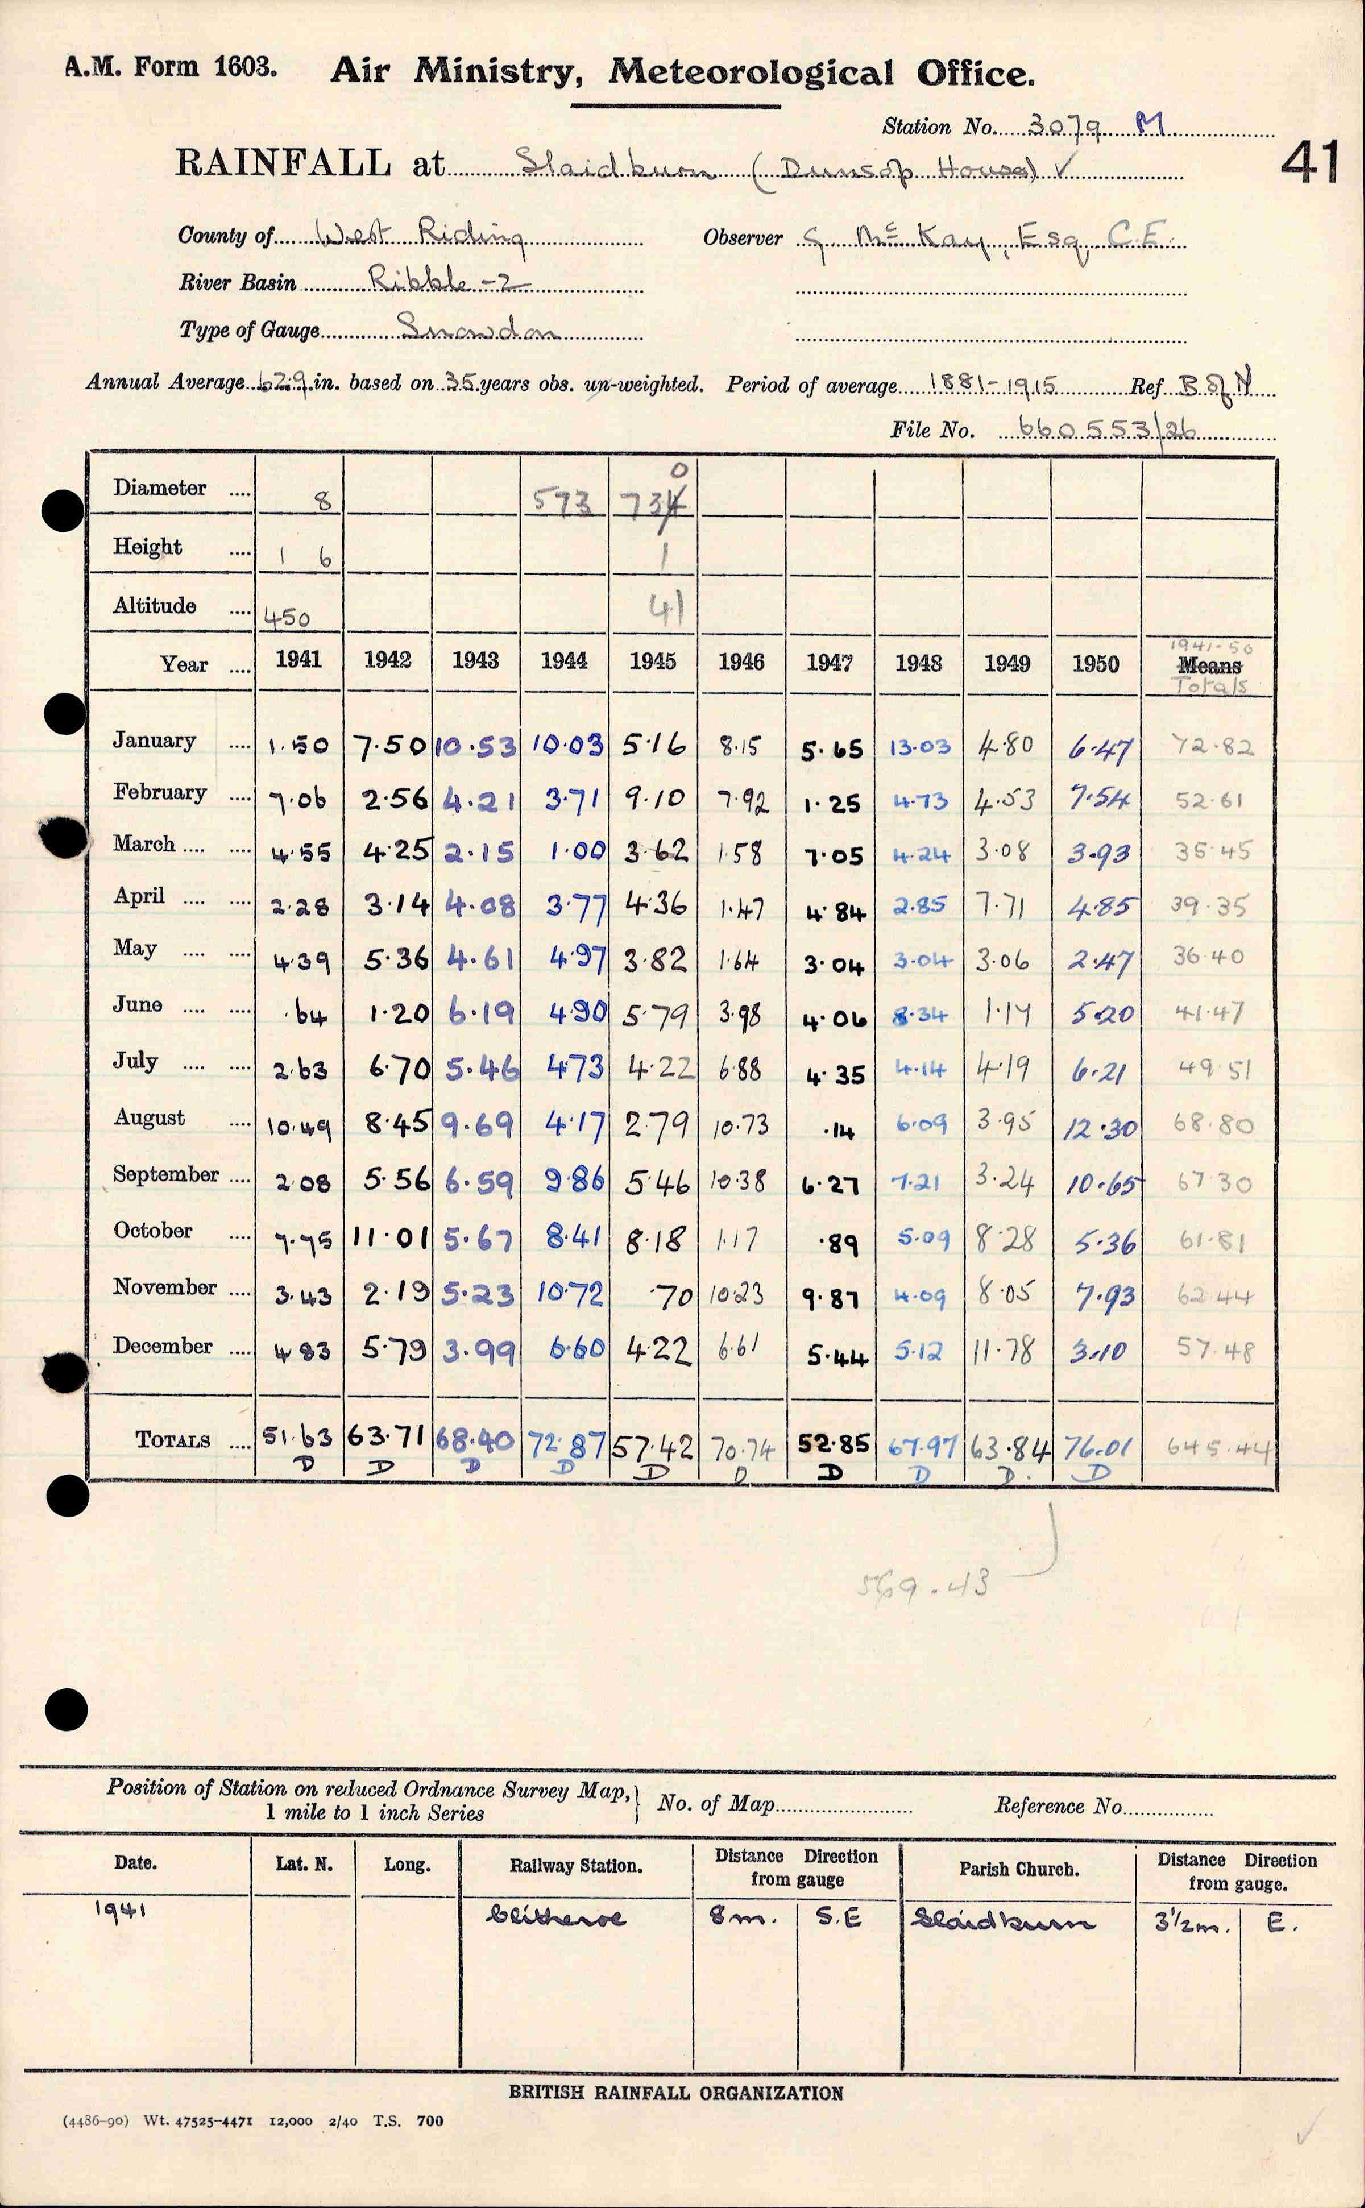 A.M. Form 1603. Air Ministry, Meteorological Office.
Station No. 3079 M
41
RAINFALL at Slaidburn (Dunsop House) ✓
County of West Riding Observer G. McKay, Esq, C.E.
River Basin Ribble -2
Type of Gauge Snowdon
Annual Average 62.9 in. based on 35 years obs. un-weighted. Period of average 1881-1915 Ref B of N
File No. 660553/26
0
Diameter .... 8 573 734
Height .... 1 6 1
Altitude .... 450 41
1941-50
Year .... 1941 1942 1943 1944 1945 1946 1947 1948 1949 1950 Means
Totals
January .... 1.50 7.50 10.53 10.03 5.16 8.15 5.65 13.03 4.80 6.47 72.82
February .... 7.06 2.56 4.21 3.71 9.10 7.92 1.25 4.73 4.53 7.54 52.61
March .... .... 4.55 4.25 2.15 1.00 3.62 1.58 7.05 4.24 3.08 3.93 35.45
April .... .... 2.28 3.14 4.08 3.77 4.36 1.47 4.84 2.85 7.71 4.85 39.35
May .... .... 4.39 5.36 4.61 4.97 3.82 1.64 3.04 3.04 3.06 2.47 36.40
June .... .... .64 1.20 6.19 4.90 5.79 3.98 4.06 8.34 1.17 5.20 41.47
July .... .... 2.63 6.70 5.46 4.73 4.22 6.88 4.35 4.14 4.19 6.21 49.51
August .... 10.49 8.45 9.69 4.17 2.79 10.73 .14 6.09 3.95 12.30 68.80
September .... 2.08 5.56 6.59 9.86 5.46 10.38 6.27 7.21 3.24 10.65 67.30
October .... 7.75 11.01 5.67 8.41 8.18 1.17 .89 5.09 8.28 5.36 61.81
November .... 3.43 2.19 5.23 10.72 .70 10.23 9.87 4.09 8.05 7.93 62.44
December .... 4.83 5.79 3.99 6.60 4.22 6.61 5.44 5.12 11.78 3.10 57.48
TOTALS .... 51.63 63.71 68.40 72.87 57.42 70.74 52.85 67.97 63.84 76.01 645.44
D D D D D D D D D. D
569.43
Position of Station on reduced Ordnance Survey Map, No. of Map Reference No.
1 mile to 1 inch Series
Date. Lat. N. Long. Railway Station. Distance Direction from gauge Parish Church. Distance Direction from gauge.
1941 Clitheroe 8 m. S.E Slaidburn 3½m. E.
BRITISH RAINFALL ORGANIZATION
(4486-90) Wt. 47525-4471 12,000 2/40 T.S. 700